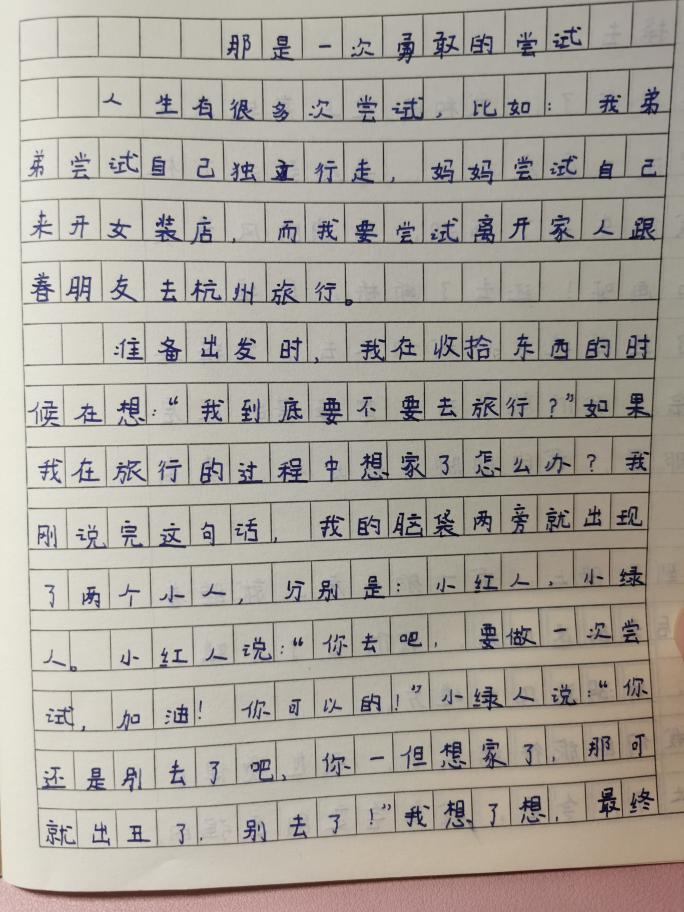 那是一次勇敢的尝试
人生有很多次尝试，比如：我弟
弟尝试自己独立行走，妈妈尝试自己
来开女装店，而我要尝试离开家人跟
着朋友去杭州旅行。
准备出发时，我在收拾东西的时
候在想：“我到底要不要去旅行？”如果
我在旅行的过程中想家了怎么办？我
刚说完这句话，我的脑袋两旁就出现
了两个小人，分别是：小红人，小绿
人。小红人说：“你去吧，要做一次尝
试，加油！你可以的！”小绿人说：“你
还是别去了吧，你一但想家了，那可
就出丑了，别去了！”我想了想，最终